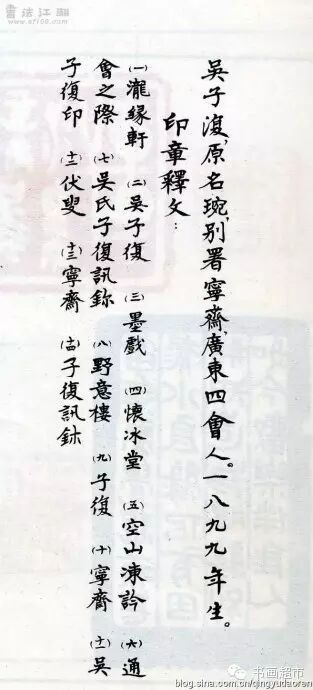 書法江湖
www.sf108.com
吳子復,原名琬,別署寧齋,廣東四會人。一八九九年生。
印章釋文:
(一)瀧緣軒 (二)吳子復 (三)墨戲 (四)懷冰堂 (五)空山凍訡 (六)通
會之際 (七)吳氏子復訊鉨 (八)野意樓 (九)子復 (十)寧齋 (十一)吳
子復印 (十二)伏叟 (十三)寧齋 (十四)子復訊
书画超市
blog.sina.com.cn/qingyudaoren